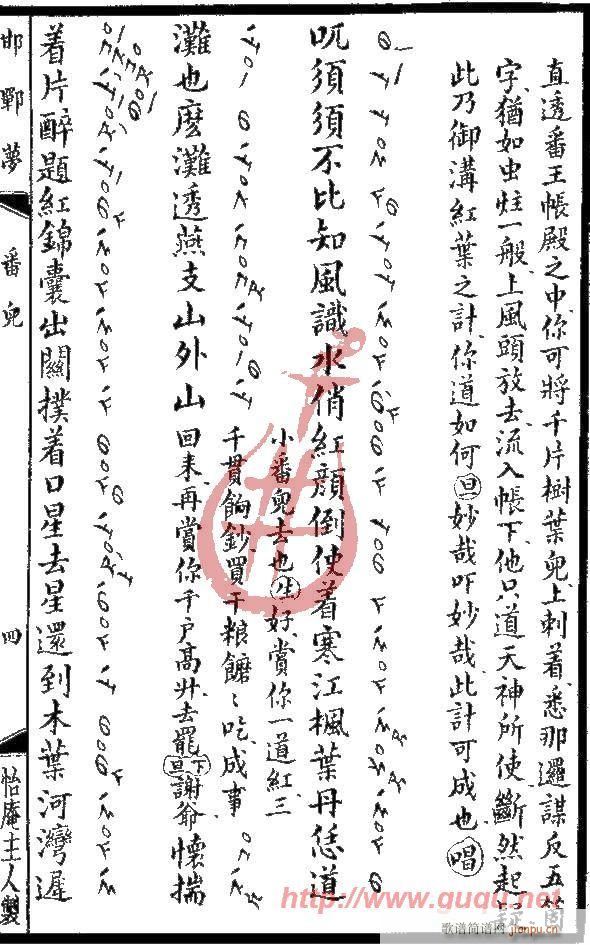 直透番王帳殿之中你可將千片樹葉兒上刺着悉那邏謀反五
字猶如虫蛀一般上風頭放去流入帳下他只道天神所使斷然起
此乃御溝紅葉之計你道如何旦妙哉吓妙哉此計可成也唱
吼須須不比知風識水俏紅顏倒使着寒江楓葉丹恁道
小番兒去也生好賞你一道紅三
千貫餉鈔買干粮饝饝吃成事
回来再賞你千戶高升去罷旦下謝爺懷揣
灘也麼灘透燕支山外山
着片醉題紅錦囊出關撲着口星去星還到木葉河灣遲
邯鄲夢
番兒
四
怡庵主人製
http://www.guqu.net
歌谱简谱网
jianpu.cn